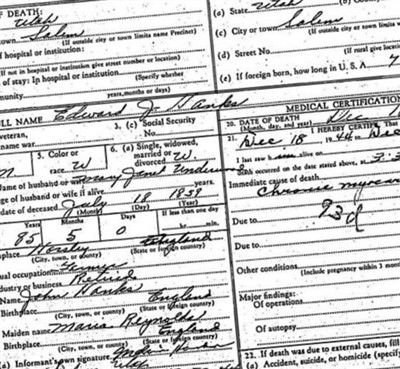 OF DEATH:
Utah
town Salem
(If outside city or town limits name Precinct)
of hospital or institution:
(If not in hospital or institution give street number or location)
of stay: In hospital or institution
(Specify whether
mmunity years, months or days)
(a) State Utah
(c) City or town Salem
(If outside city or town
(d) Street No.
(If rural give location
(e) If foreign born, how long in U. S. A.
ULL NAME Edward J. Hanks
veteran,
name war
3. (c) Social Security
No.
5. Color or
race W
6. (a) Single, widowed,
married or
divorced W.
Name of husband or
Mary Janet Underwood
ge of husband or wife if alive years.
date of deceased July 18 1839
(Month) (Day) (Year)
Months Days If less than one day
85 5 0 hr. min.
place Horsley England
(City, town, or county) (State or foreign country)
ual occupation Farmer
ndustry or business Retired
Name John Hanks
Birthplace England
(City, town, or county) (State or foreign country)
Maiden name Maria Reynolds
Birthplace England
(City, town, or county) (State or foreign country)
(a) Informant's own signature
Utah
MEDICAL CERTIFICATION
20. DATE OF DEATH
(Month, day, and year) Dec
21. I HEREBY CERTIFY, That
Dec 18 1944 Dec
I last saw alive on
Death occurred on the date stated above, at
Immediate cause of death
Chronic
93d
Due to
Due to
Other conditions
(Include pregnancy within 3 mon
Major findings:
Of operations
Of autopsy
22. If death was due to external causes, fill
(a) Accident, suicide, or homicide (specify)